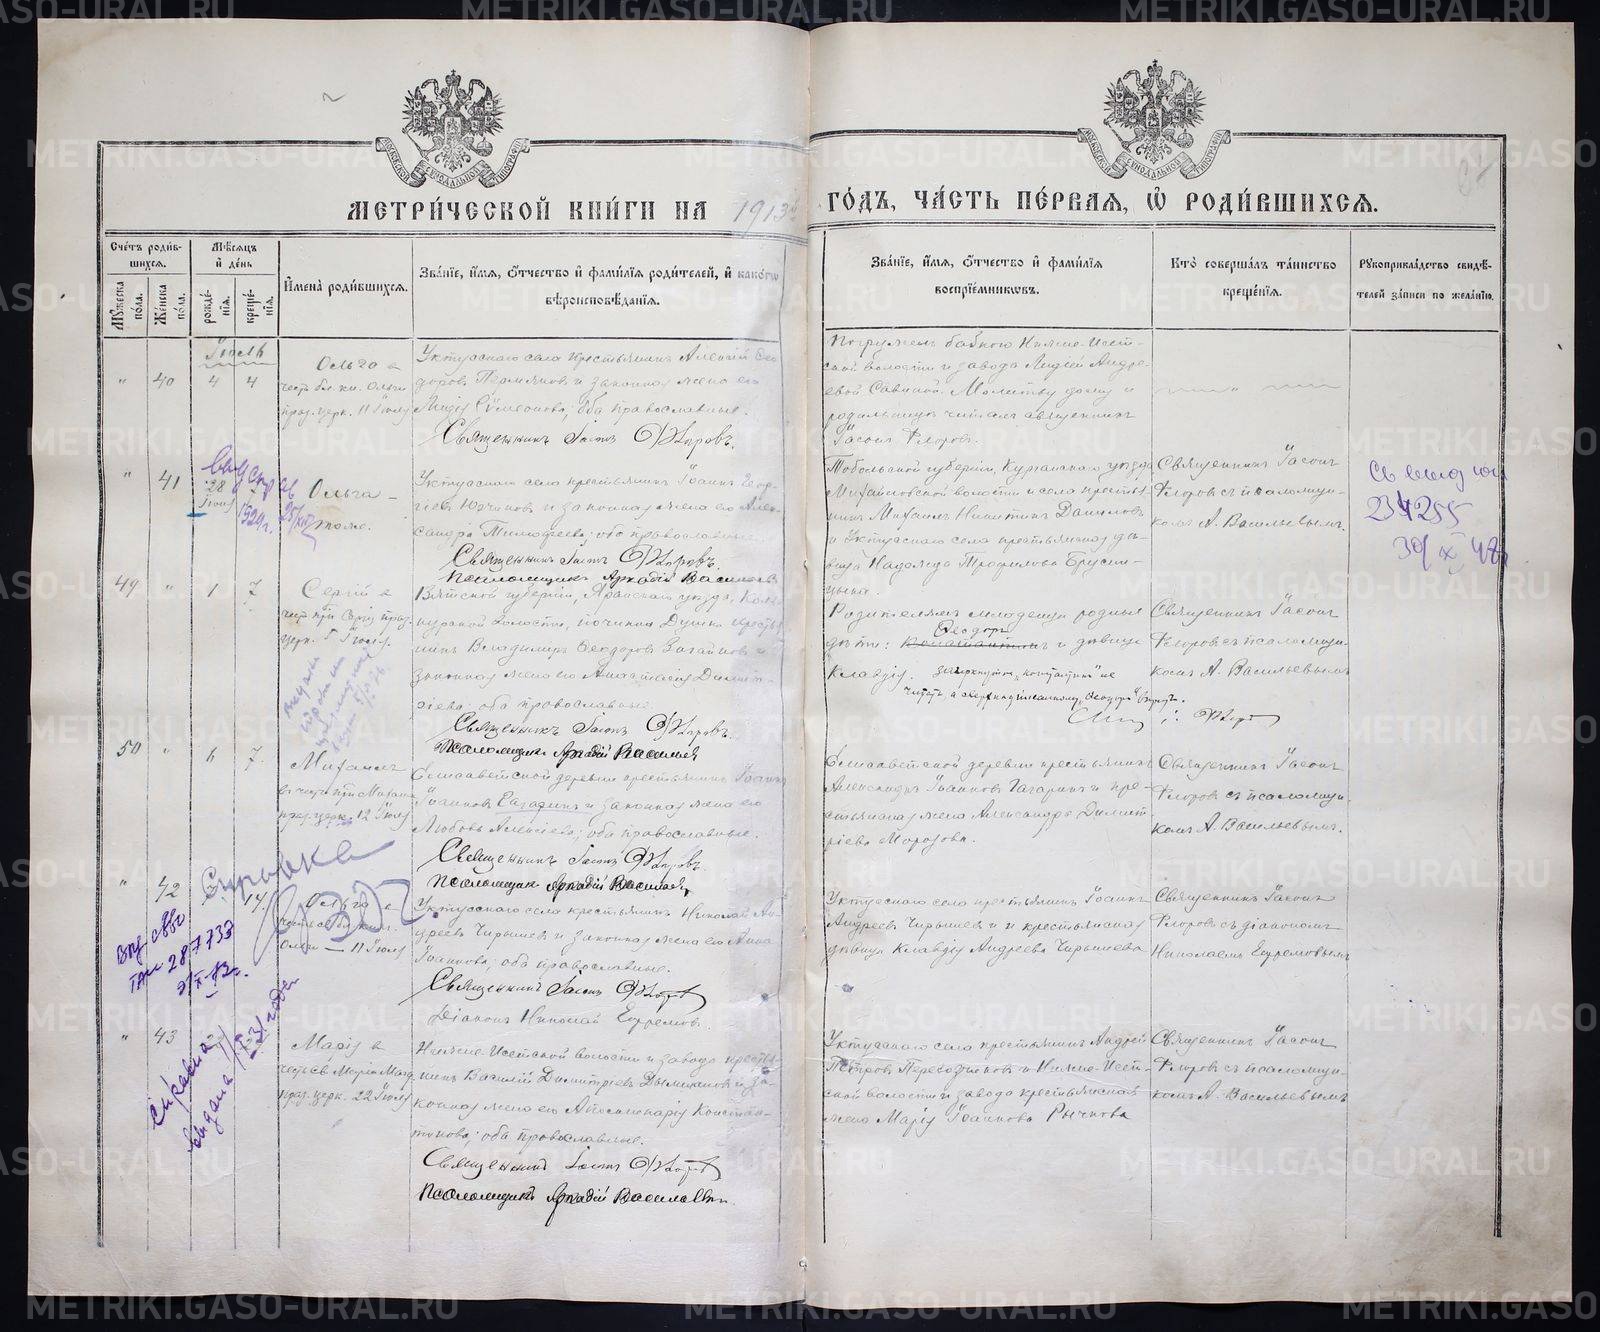 МЕТРИ́ЧЕСКОЙ КНИ́ГИ НА 1913й ГО́ДЪ, ЧА́СТЬ ПЕ́РВАЯ, Ѡ РОДИ́ВШИХСЯ.
Сче́тъ роди́в-
шихся.
Му́жеска по́ла.
Же́нска по́ла.
Мѣ́сяцъ
и де́нь
рожде́-
нія.
креще́-
нія.
Имена́ роди́вшихся.
Зва́ніе, и́мя, о́тчество и фами́лія роди́телей, и како́гѡ
вѣроисповѣ́данія.
Зва́ніе, и́мя, о́тчество и фами́лія
воспріе́мникѡвъ.
Кто̀ соверша́лъ та́инство
креще́нія.
Рукоприкла́дство свидѣ́-
телей за́писи по жела́нію.
Іюль
" 40 4 4
Ольга въ
честь бл. кн. Ольги
праз. церк. 11 Іюля
Уктусскаго села крестьянинъ Алексій Ѳео-
доровъ Пермяковъ и законная жена его
Лидія Сѵмеонова; оба православные.
Священникъ Іасонъ Флоровъ.
Погружена бабкою Нижне-Исет-
ской волости и завода Лидіей Андре-
евой Савиной. Молитву дому и
родильницѣ читалъ священникъ
Іасонъ Флоровъ.
" 41 28 Іюня
Ольга –
тоже.
Уктусскаго села крестьянинъ Іоаннъ Геор-
гіевъ и законная жена его Алек-
сандра Тимоѳеева; оба православные.
Священникъ Іасонъ Флоровъ.
Псаломщикъ Аркадій Васильевъ
Тобольской губерніи, Курганскаго уѣзда
Михайловской волости и села крестья-
нинъ Михаилъ Никитинъ Даниловъ
и Уктусскаго села крестьянская дѣ-
вица Надежда Трофимова Брусни-
цына.
Священникъ Іасонъ
Флоровъ съ псаломщи-
комъ А. Васильевымъ.
234255
49 " 1 7
Сергій въ
честь прп. Сергія праз.
церк. 5 Іюля.
Вятской губерніи, Яранскаго уѣзда,
волости, починка кресть-
нинъ Владиміръ Ѳеодоровъ и
законная жена его Анастасія Димит-
ріева; оба православные.
Священникъ Іасонъ Флоровъ.
Псаломщикъ Аркадій Васильевъ
Родителямъ младенца родные
Ѳеодоръ
дѣти: Константинъ и дѣвица
Клавдія. зачеркнутое „Константинъ" не
читать, а сверху надписанному „Ѳеодоръ" вѣрить.
Свящ. І. Флоровъ
Священникъ Іасонъ
Флоровъ съ псаломщи-
комъ А. Васильевымъ
50 " 6 7.
Михаилъ
въ честь прп. Михаила
праз. церк. 12 Іюля
Елисаветской деревни крестьянинъ Іоаннъ
Іоанновъ и законная жена его
Любовь Алексіева; оба православные.
Священникъ Іасонъ Флоровъ
Псаломщикъ Аркадій Васильевъ
Елисаветской деревни крестьянинъ
Александръ Іоанновъ Гагаринъ и кре-
стьянская жена Александра Димит-
ріева Морозова.
Священникъ Іасонъ
Флоровъ съ псаломщи-
комъ А. Васильевымъ.
Справка
" 42 14
Ольга въ
Ольги – 11 Іюля
Уктусскаго села крестьянинъ Николай Ан-
дреевъ Чирышевъ и законная жена его Анна
Іоаннова; оба православные.
Священникъ Іасонъ Флоровъ
Діаконъ Николай Ефремовъ.
Уктусскаго села крестьянинъ Іоаннъ
Андреевъ Чирышевъ и крестьянская
дѣвица Клавдія Андреева Чирышева
Священникъ Іасонъ
Флоровъ съ діакономъ
Николаемъ Ефремовымъ
" 43
Справка
выдана
1931 года
Марія въ
честь св. Маріи Магд.
праз. церк. 22 Іюля
Нижне-Исетской волости и завода кресть-
нинъ Василій Димитріевъ и за-
конная жена его Аполлинарія Констан-
тинова; оба православные.
Священникъ Іасонъ Флоровъ
Псаломщикъ Аркадій Васильевъ.
Уктусскаго села крестьянинъ Андрей
Петровъ и Нижне-Исет-
ской волости и завода крестьянская
жена Марія Іоаннова Рычкова
Священникъ Іасонъ
Флоровъ съ псаломщи-
комъ А. Васильевымъ
METRIKI.GASO-URAL.RU